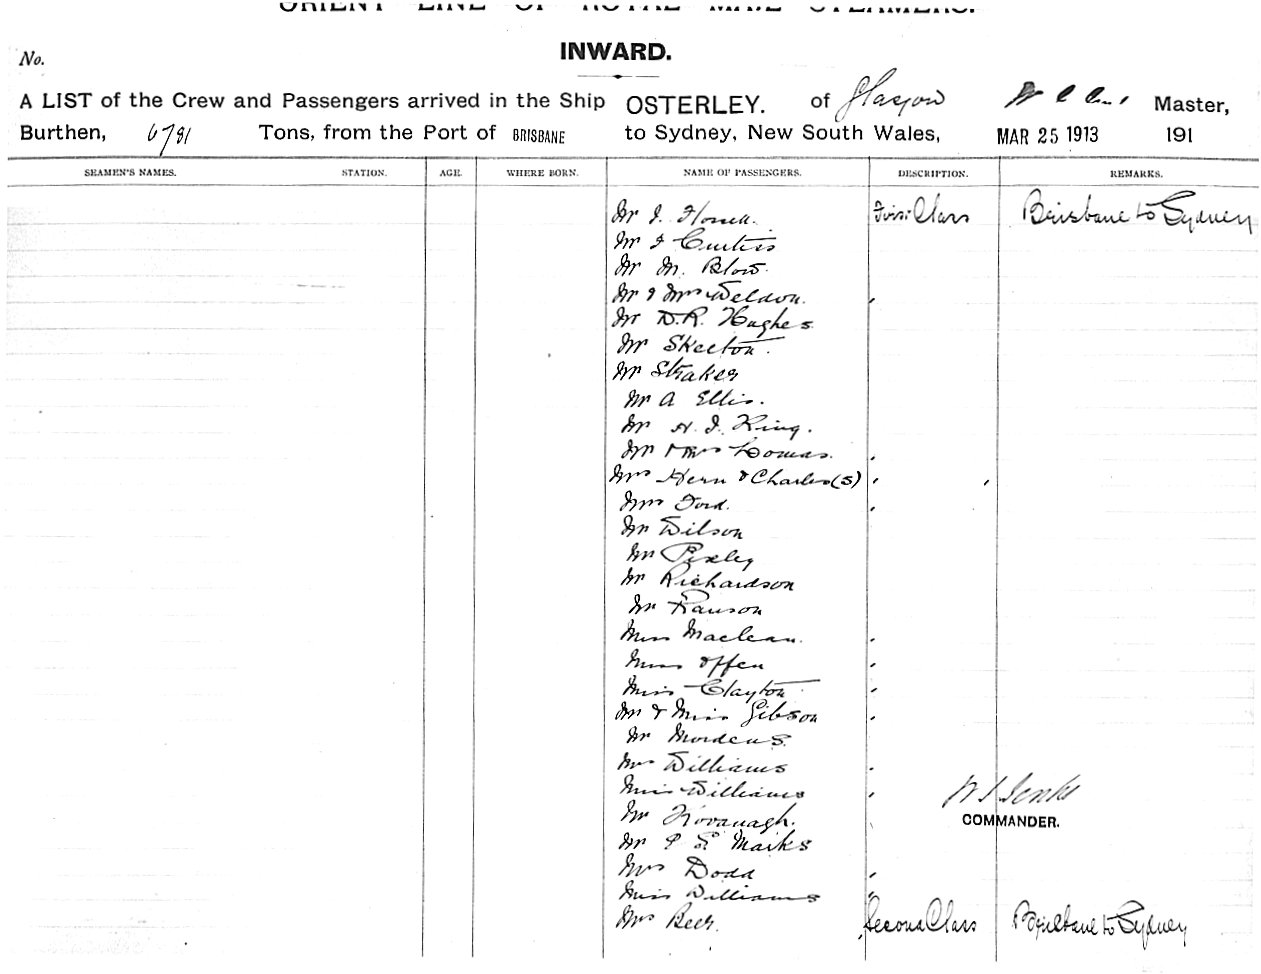 ORIENT LINE OF ROYAL MAIL STEAMERS.
INWARD.
No.
A LIST of the Crew and Passengers arrived in the Ship OSTERLEY. of Glasgow Master,
Burthen, 6781 Tons, from the Port of BRISBANE to Sydney, New South Wales, MAR 25 1913 191
SEAMEN'S NAMES. STATION. AGE. WHERE BORN. NAME OF PASSENGERS. DESCRIPTION. REMARKS.
Mr J. First Class Brisbane to Sydney
Mr J Curtiss
Mr M. Blow
Mr & Mrs Weldon.
Mr D.R. Hughes
Mr Skeeton.
Mr Straker
Mr A Ellis.
Mr H. J. King.
Mr & Mrs Lomas.
Mrs Hern & Charles (S)
Mrs Ford.
Mr Wilson
Mr Pixley
Mr Richardson
Mr Ranson
Miss Maclean.
Miss Offen
Miss Clayton
Mr & Miss Gibson
Mr
Mrs Williams
Miss Williams
Mr Kovanagh.
COMMANDER.
Mr P S Marks
Mrs Dodd
Miss Williams
Mrs Beer. Second Class Brisbane to Sydney